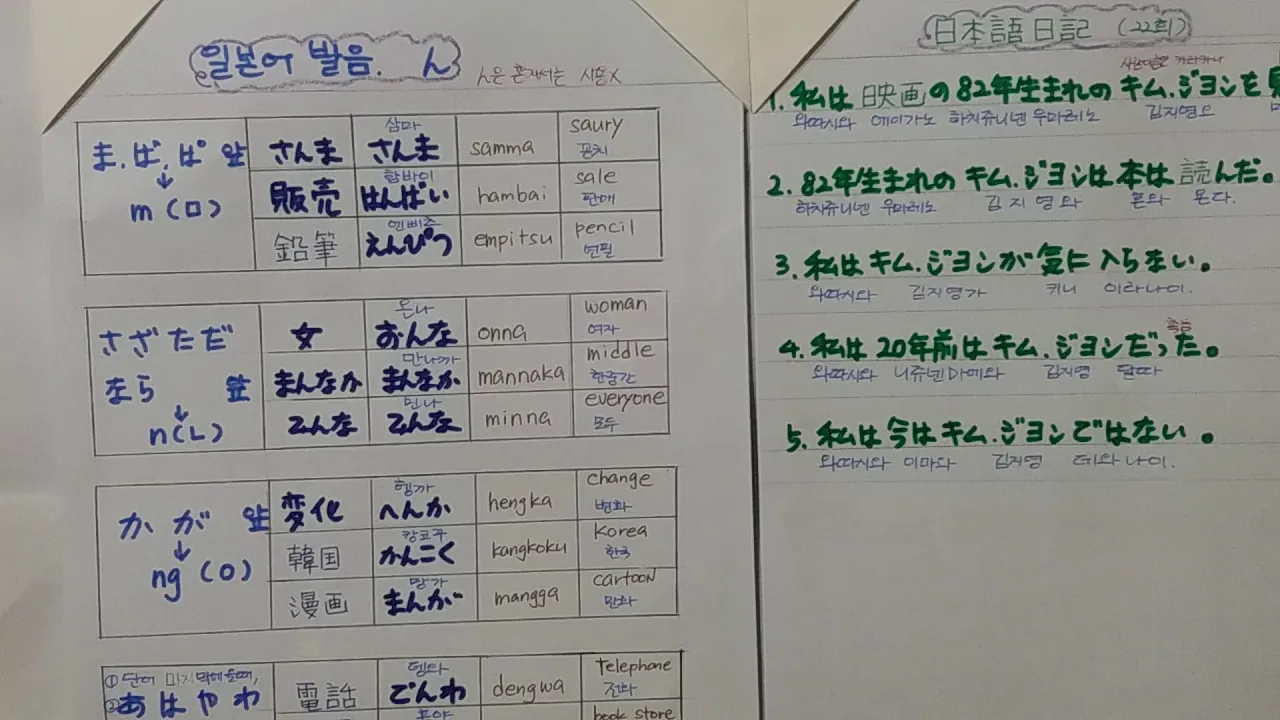 일본어 발음. ん
ん은 혼자서는 사용X
ま.ば.ぱ 앞
↓
m (ㅁ)
さんま 삼마 さんま samma saury 꽁치
販売 함바이 はんばい hambai sale 판매
鉛筆 엔삐츠 えんぴつ empitsu pencil 연필
さざただ
なら 앞
↓
n(ㄴ)
女 온나 おんな onna woman 여자
まんなか 만나까 まんなか mannaka middle 한중간
みんな 민나 みんな minna everyone 모두
か が 앞
↓
ng (ㅇ)
変化 헹까 へんか hengka change 변화
韓国 캉코쿠 かんこく kangkoku Korea 한국
漫画 망가 まんが mangga cartoon 만화
①단어 마지막에 올때,
②あ は や わ
電話 뎅와 でんわ dengwa Telephone 전화
book store
日本語 日記 (22회)
1. 私は 映画の 82年生まれの キム.ジヨンを 見
와따시와 에이가노 하치쥬니넨 우마레노 김지영오
2. 82年生まれの キム.ジヨンは 本は 読んだ。
하치쥬니넨 우마레노 김지영와 혼와 욘다.
3. 私は キム.ジヨンが 気に 入らない。
와따시와 김지영가 키니 이라나이.
4. 私は 20年前は キム.ジヨンだった。
와따시와 니쥬넨마에와 김지영 닫따
5. 私は 今は キム.ジヨンではない 。
와따시와 이마와 김지영 데와나이.